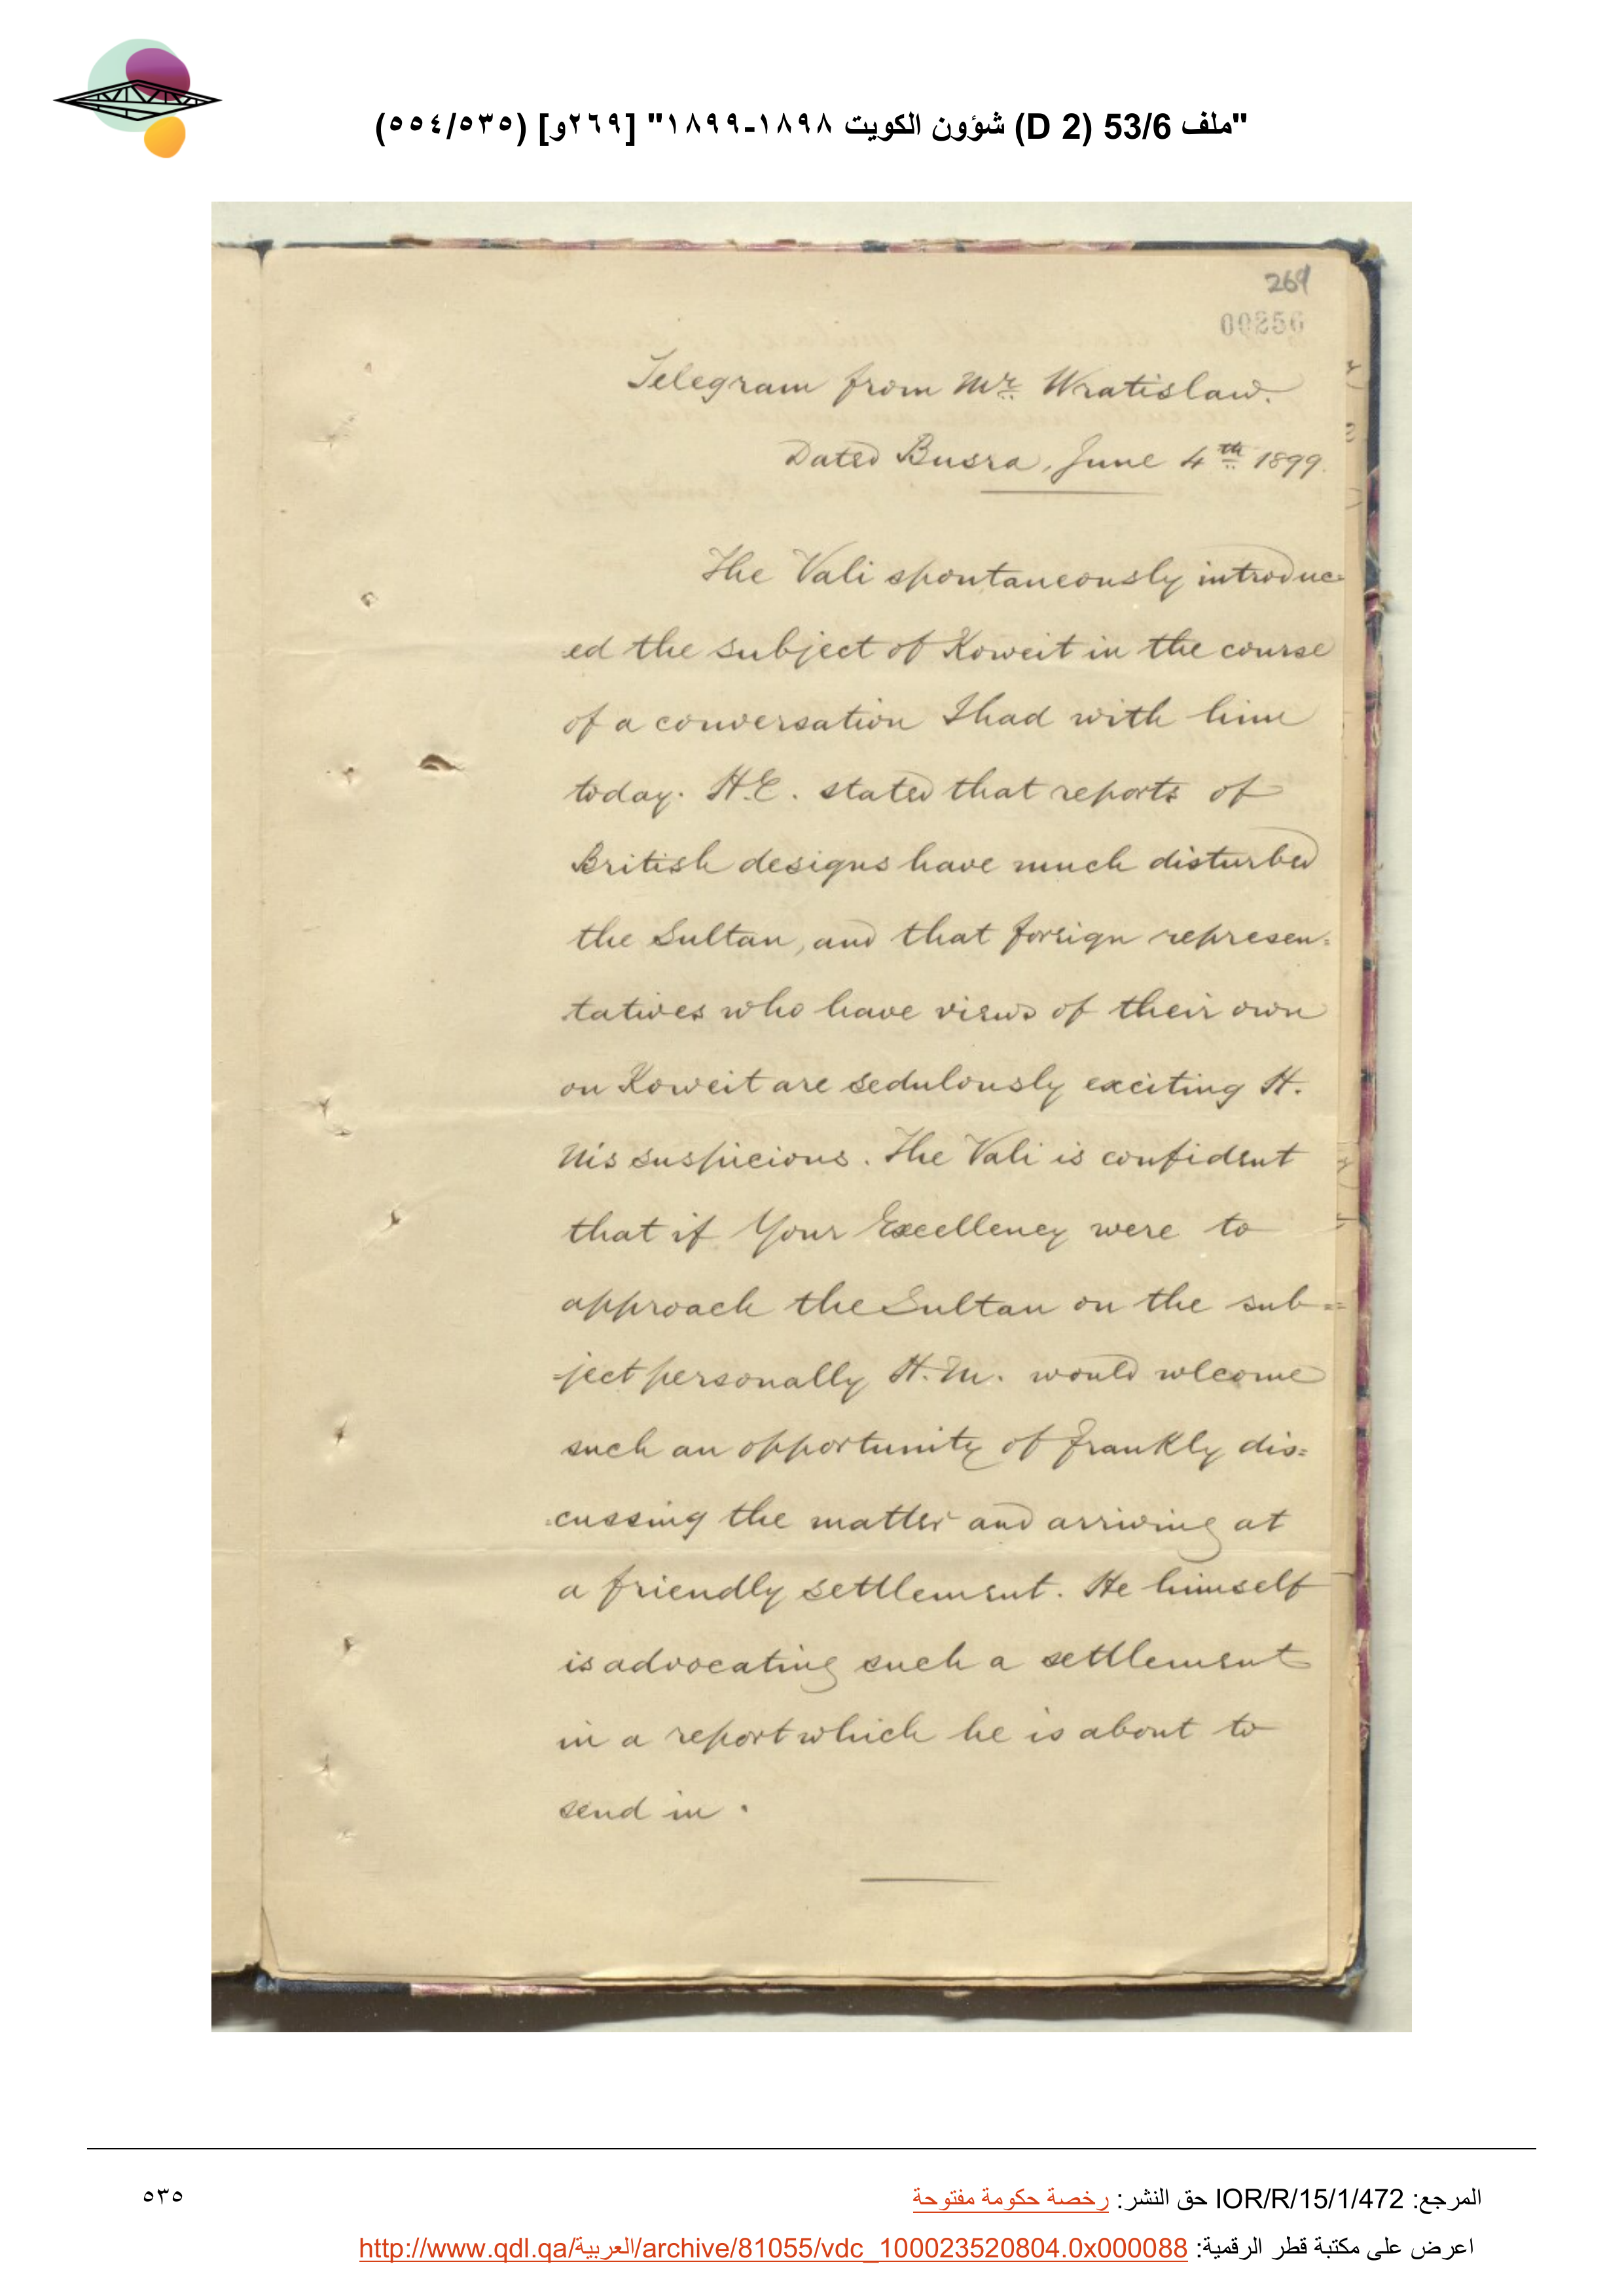 "ملف 53/6 (D 2) شؤون الكويت ١٨٩٨-١٨٩٩" [٢٦٩و] (٥٣٥/٥٥٤)
269
00256
Telegram from Mr. Wratislaw.
Dated Busra, June 4th 1899.
The Vali spontaneously introduc-
ed the subject of Koweit in the course
of a conversation I had with him
today. H.E. stated that reports of
British designs have much disturbed
the Sultan, and that foreign represen-
tatives who have views of their own
on Koweit are sedulously exciting H.
M's suspicions. The Vali is confident
that if Your Excellency were to
approach the Sultan on the sub=
-ject personally H.M. would wlcome
such an opportunity of frankly dis=
=cussing the matter and arriving at
a friendly settlement. He himself
is advocating such a settlement
in a report which he is about to
send in.
المرجع: IOR/R/15/1/472 حق النشر: رخصة حكومة مفتوحة
٥٣٥
اعرض على مكتبة قطر الرقمية: http://www.qdl.qa/العربية/archive/81055/vdc_100023520804.0x000088